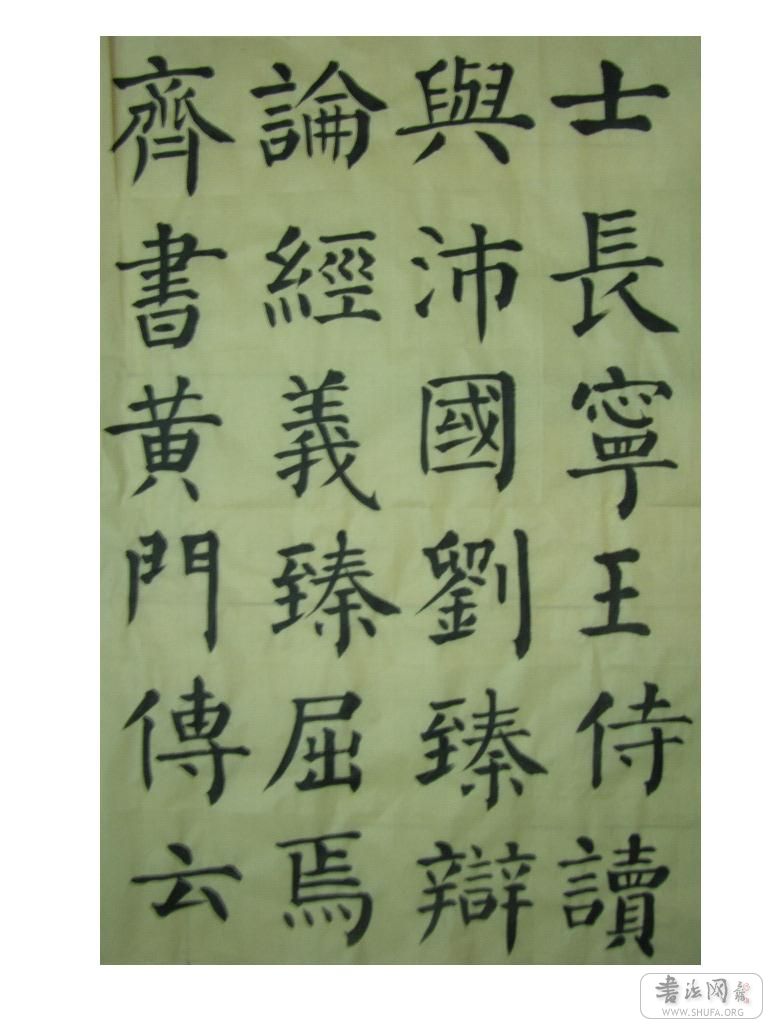 士長寧王侍讀
與沛國劉臻辯
論經義臻屈焉
齊書黃門傳云
书法网
WWW.SHUFA.ORG